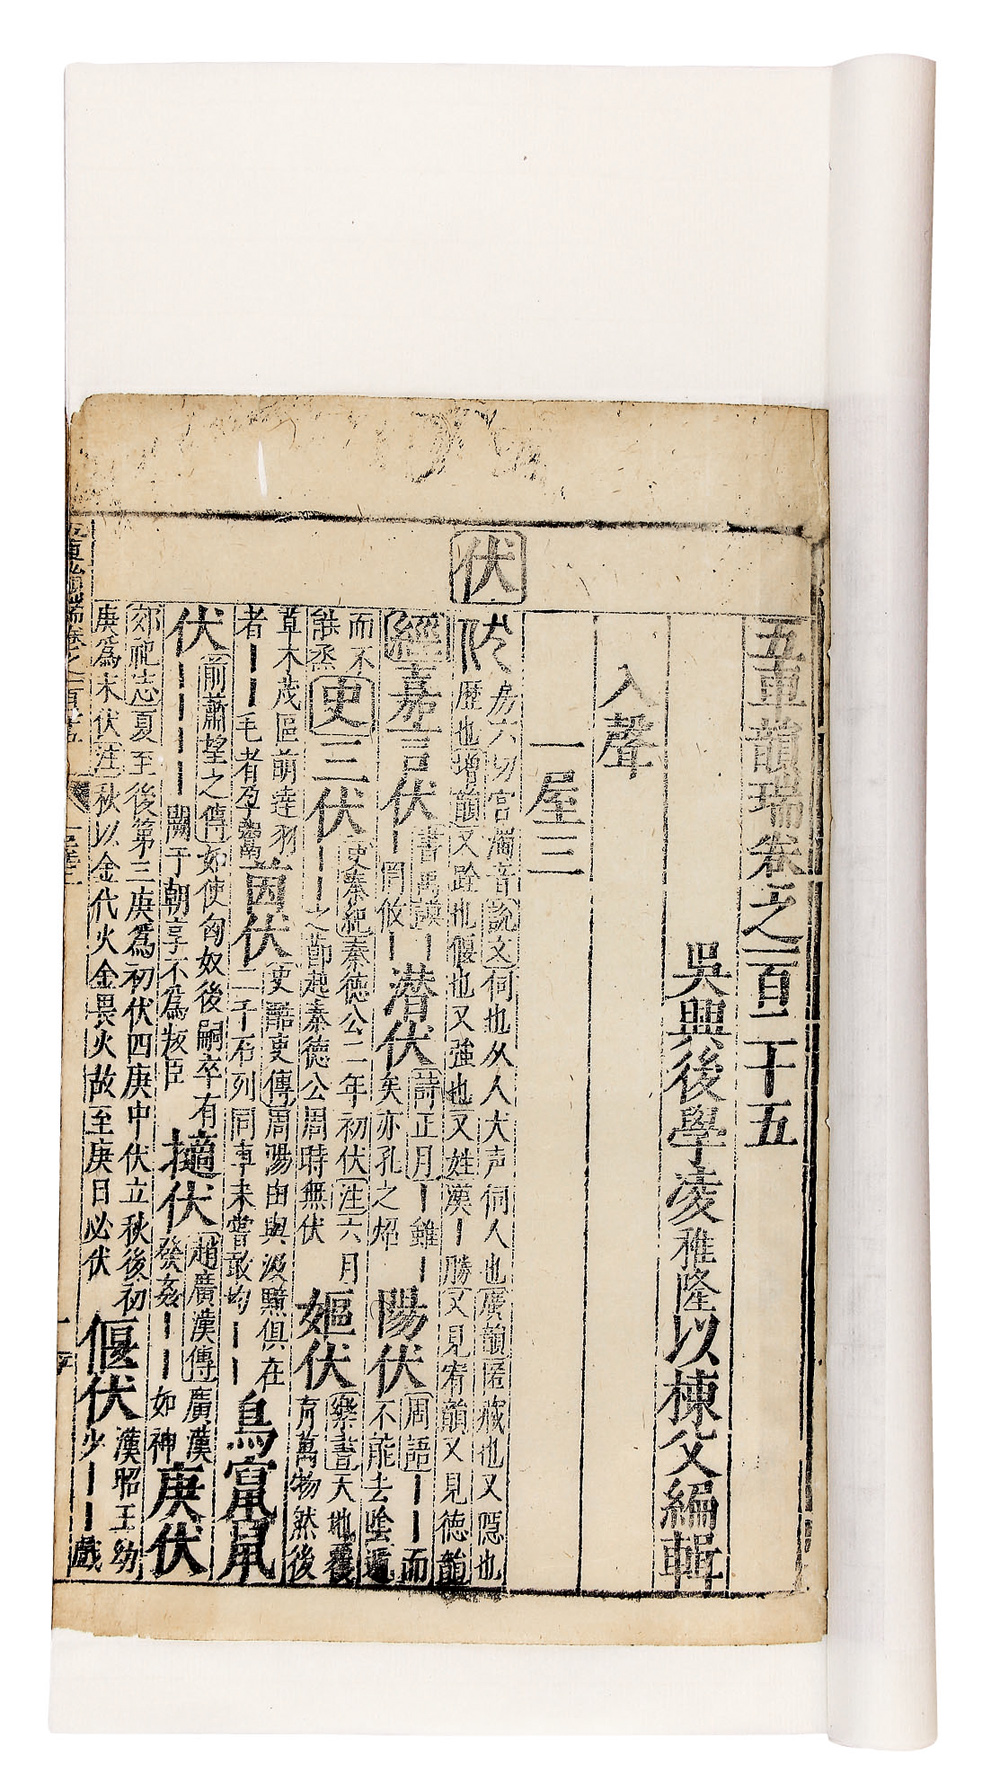 五車韻瑞卷之一百二十五
吳興後學凌稚隆以棟父編輯
入聲
一屋三
伏
房六切宮濁音說文伺也从人犬声伺人也廣韻匿藏也又隱也
歷也增韻又跧也偃也又強也又姓漢丨勝又見宥韻又見德韻
經嘉言伏丨書禹謨丨丨罔攸潛伏詩正月丨雖丨矣亦孔之炤陽伏周語丨丨而不能去陰遁
而不能烝史三伏丨丨史秦紀秦德公二年初伏注六月之節起秦德公周時無伏嫗伏樂書天地覆育萬物然後
草木茂區萌達羽者丨丨毛者孕鬻茵伏史酷吏傳周陽由與汲黯俱在二千石列同車未嘗敢均丨丨鳥竄鼠
伏丨丨丨丨前蕭望之傳如使匈奴後嗣卒有闕于朝享不爲叛臣擿伏趙廣漢傳廣漢發姦丨丨如神庚伏
郊祀志夏至後第三庚爲初伏四庚中伏立秋後初庚爲末伏注秋以金代火金畏火故至庚日必伏偃伏漢昭王幼少丨丨戲